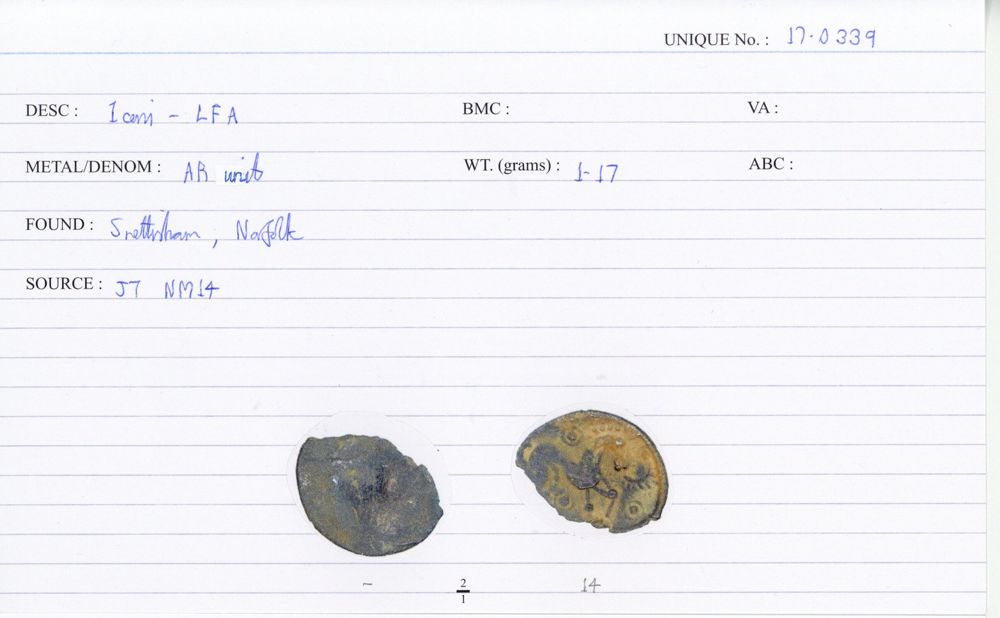 UNIQUE No. : 17.0339
DESC : Iceni - LFA BMC : VA :
METAL/DENOM : AR unit WT. (grams) : 1.17 ABC :
FOUND : Snettisham, Norfolk
SOURCE : J7 NM14
- 2/1 14